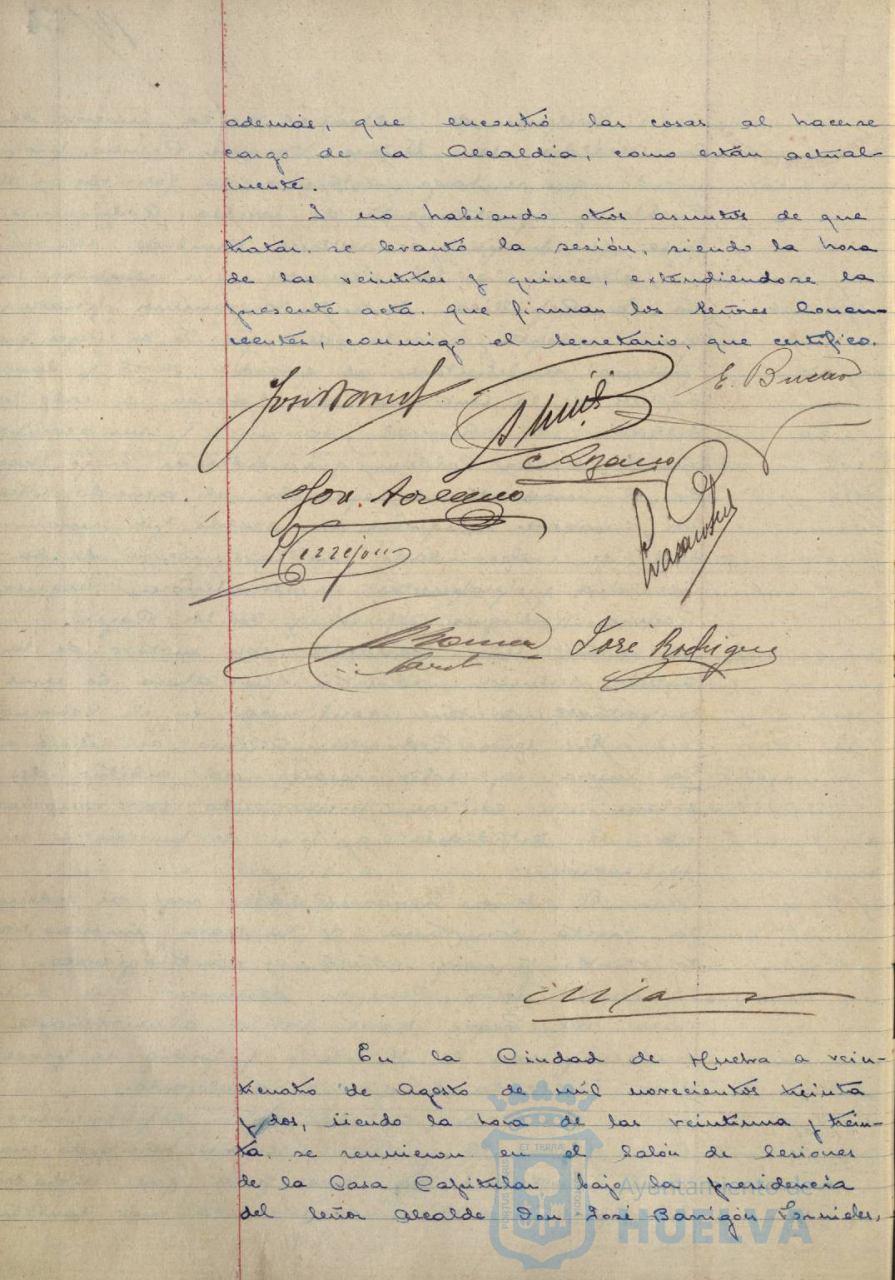 además, que encontró las cosas al hacerse
cargo de la Alcaldía, como están actual-
mente.
Y no habiendo otros asuntos de que
tratar se levantó la sesión, siendo la hora
de las veintitres y quince, extendiendose la
presente acta que firman los Señores Concu-
rrentes, conmigo el Secretario, que certifico.
E. Bueno
José Rodriguez
En la Ciudad de Huelva a vein-
ticuatro de Agosto de mil novecientos treinta
y dos, siendo la hora de las veintiuna y trein-
ta, se reunieron en el Salón de Sesiones
de la Casa Capitular bajo la presidencia
del Señor Alcalde Don José Barrigón Fornieles,
Ayuntamiento de
HUELVA